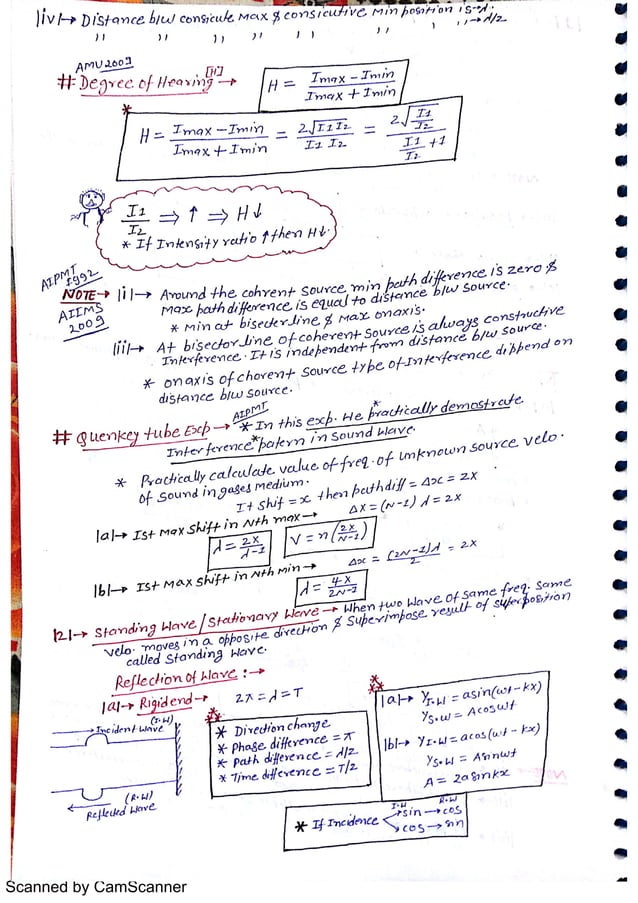 |iv|→ Distance b/w consicute Max & consicutive Min position is
" " " " " " " → λ/2
AMU 2009
# Degree of Hearing [H] → H = Imax - Imin / Imax + Imin
* H = Imax - Imin / Imax + Imin = 2√I1I2 / I1 I2 = 2√(I1/I2) / (I1/I2 + 1)
I1/I2 ⇒ ↑ ⇒ H↓
* If Intensity ratio ↑ then H↓.
AIPMT 1992
NOTE → |i|→ Around the cohrent source min path difference is zero &
Max path difference is equal to distance b/w source.
AIIMS 2009
* Min at bisector line & Max on axis.
|ii|→ At bisector line of coherent source is always constructive
Interference. It is independent from distance b/w source.
* on axis of chorent source type of Interference dippend on
distance b/w source.
# Quenkey tube Exp → AIPMT * In this exp. He *practically demostrate
Interference* patern in sound wave.
* Practically calculate value of freq. of unknown source velo.
of sound in gases medium.
It shif = x then path diff = Δx = 2x
|a|→ Ist Max shift in Nth max → Δx = (N-1) λ = 2x
λ = 2x / λ-1 V = n(2x / N-1)
|b|→ Ist Max shift in Nth Min → Δx = (2N-1)λ / 2 = 2x
λ = 4x / 2N-1
|2|→ Standing Wave / Stationary Wave → When two wave of same freq. same
velo. moves in a opposite direction & superimpose result of superposition
called Standing Wave.
Reflection of Wave :→
|a|→ Rigid end → 2π = λ = T
Incident wave (I.W)
(R.W)
Reflected wave
* Direction change
* Phase difference = π
* Path difference = λ/2
* Time difference = T/2
|a|→ YI.W = a sin(wt - kx)
YS.W = A cos wt
|b|→ YI.W = a cos(wt - kx)
YS.W = A sin wt
A = 2a sin kx
* If Incidence I.W R.W
sin → cos
cos → sin
Scanned by CamScanner